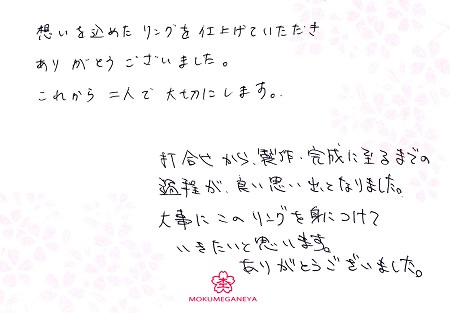 想いを込めたリングを仕上げていただき
ありがとうございました。
これから二人で大切にします。
打合せから、製作・完成に至るまでの
過程が、良い思い出となりました。
大事にこのリングを身につけて
いきたいと思います。
ありがとうございました。
MOKUMEGANEYA